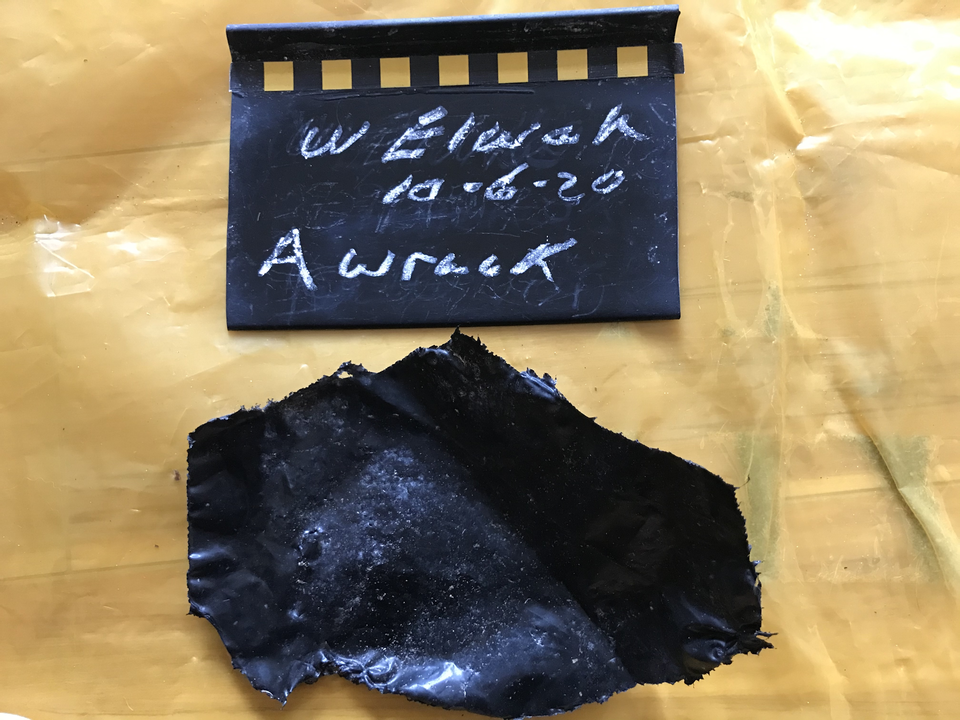 W Elwick
10-6-20
A wrack